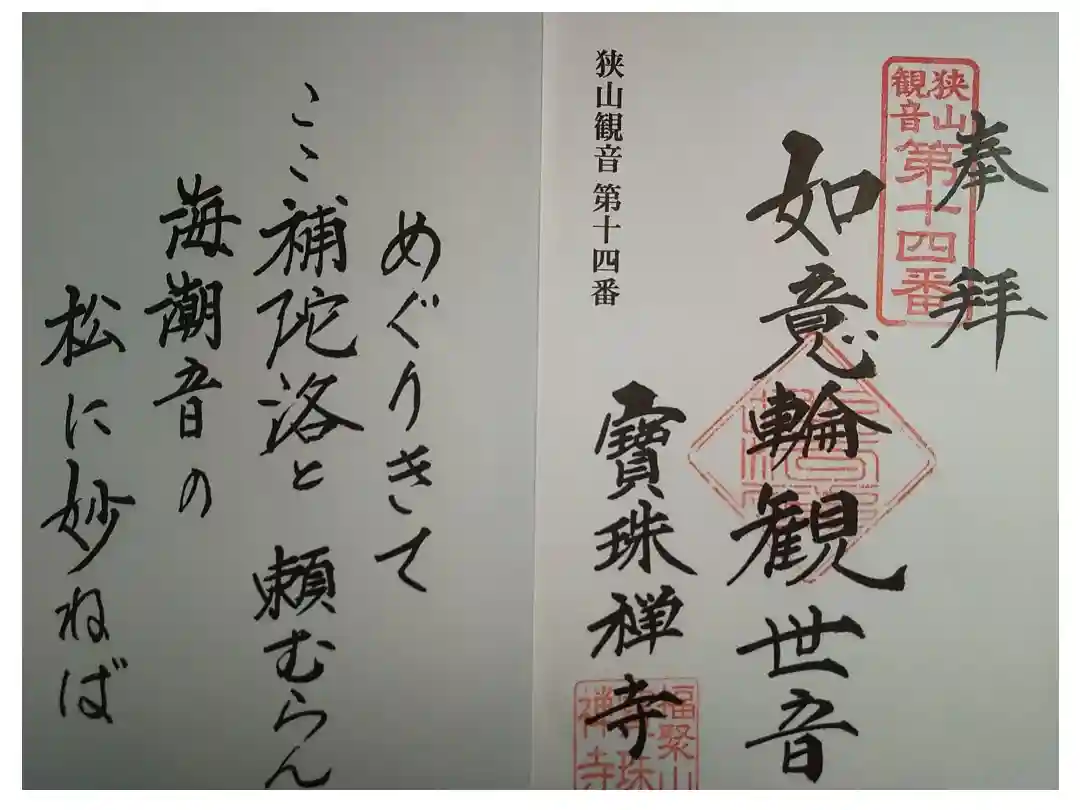 奉拝
狭山
観音
第十四番
如意輪観世音
寳珠禅寺
福聚山
寳珠
禅寺
狭山観音 第十四番
めぐりきて
ここ補陀洛と 頼むらん
海潮音の
松に妙ねば